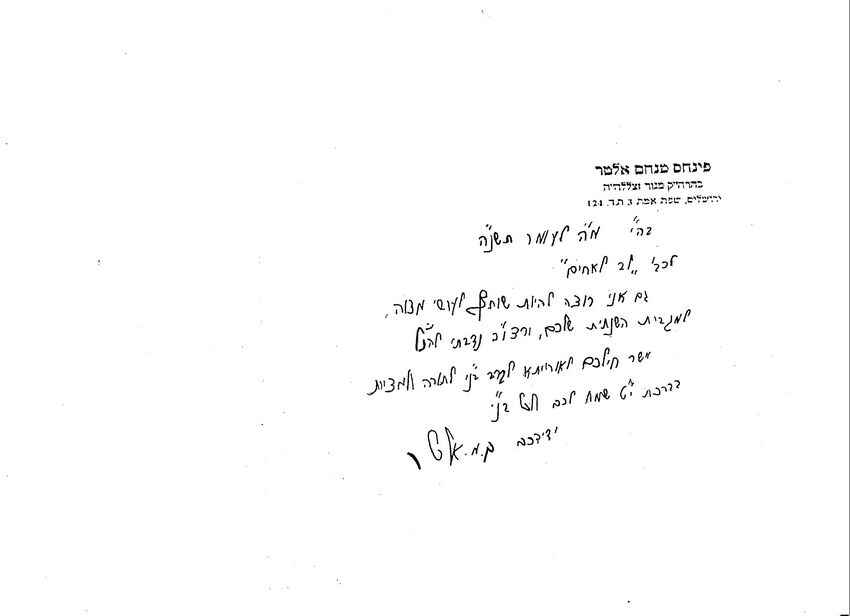 פינחס מנחם אלטר
בהרה״ק מגור זצללה״ה
ירושלים, שפת אמת 3 ת.ד. 124
בה״י מ״ה לעומר תשנ״ה
לכב׳ „לב לאחים״
גם אני רוצה להיות שותף לעושי מצוה,
למגבית השנתית שלכם, ורצו״ב נדבתי להנ״ל
ישר חילכם לאורייתא לקרב בנ״י לתורה ולמצוות
בברכת י״ט שמח לכם ולכל בנ״י
ידידכם פ.מ. אלטר